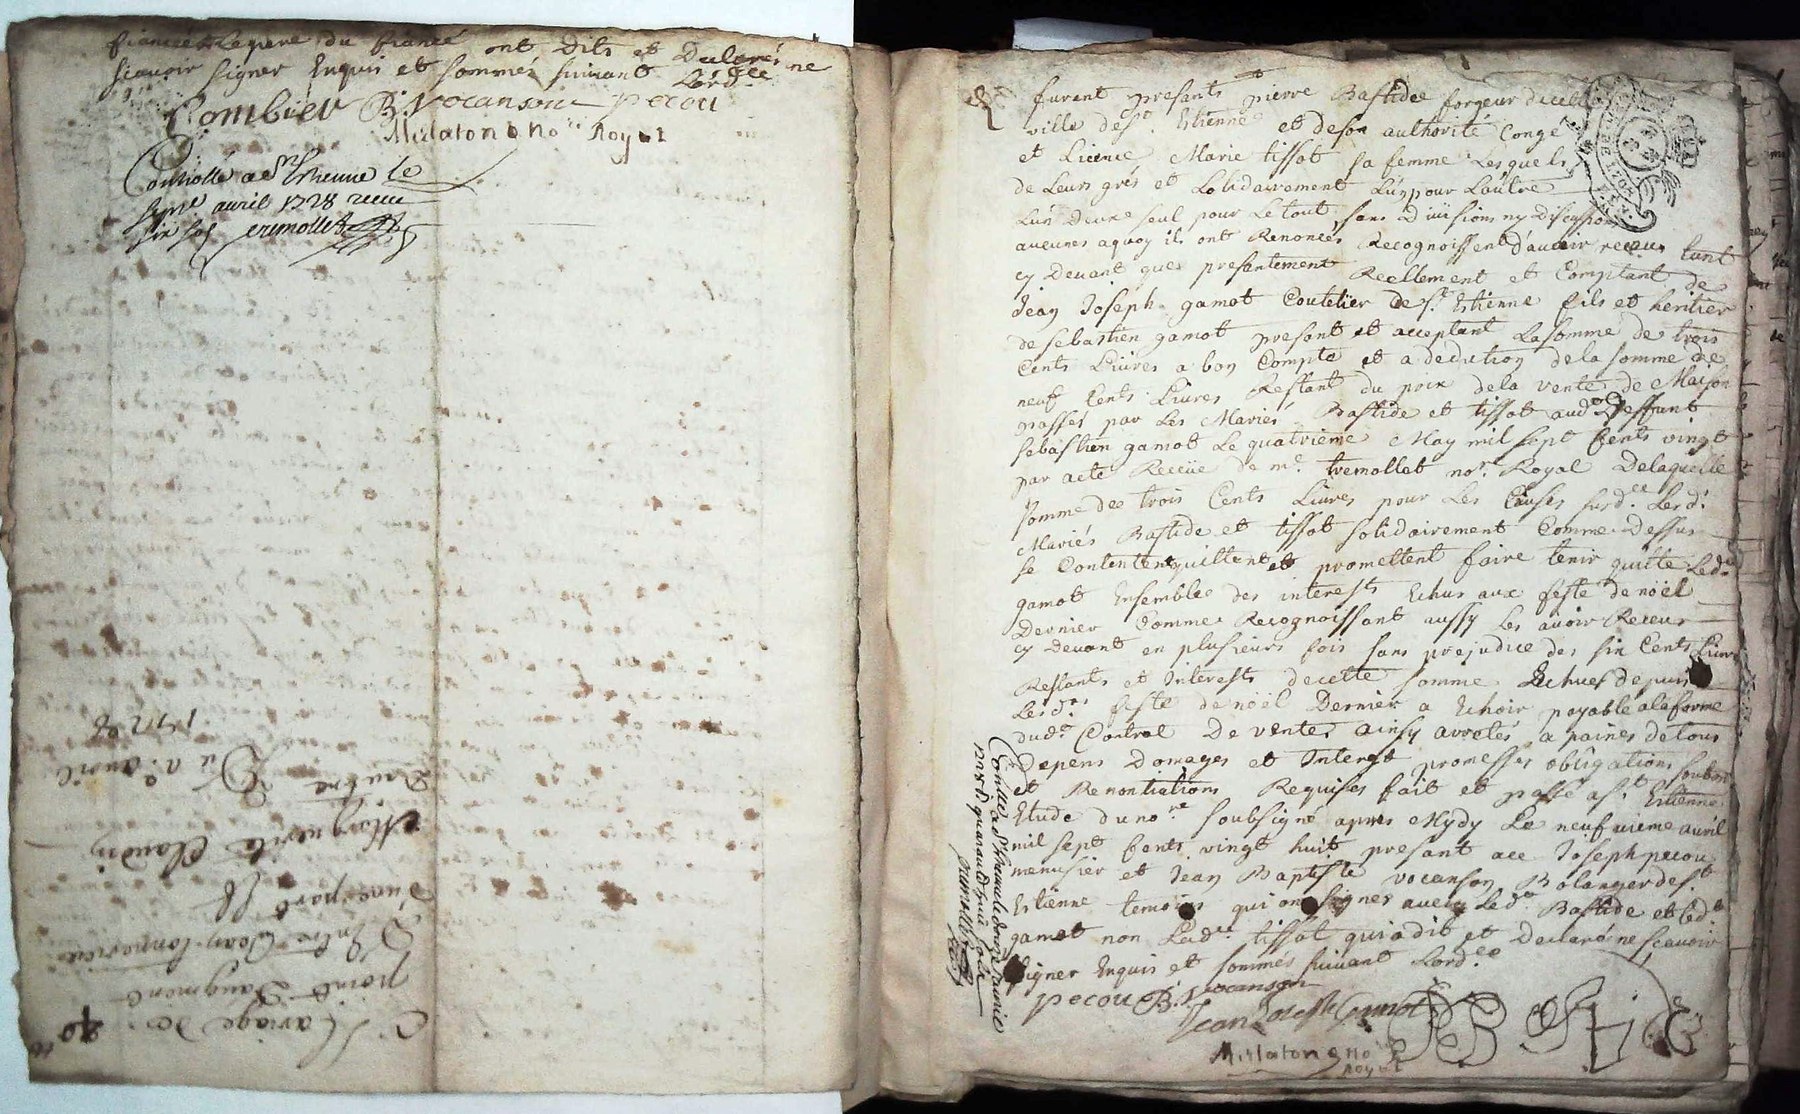 fiancée le pere du fiancé ont dits et declarés ne
scauoir signer Enquis et sommés suiuant Lord.ce
Combier B. Vocanson pecou
Mirlaton no.re Royal
Controllé a St Etienne le
avril 1728 receu
six sols tremollet
Mariage
point D'augment
Entre Jean
D'une part &
Marguerite Claudin
D'autre
Du 1.er auril
1728
furent presants pierre Bastide forgeur de cette
ville de St. Estienne et de son authorité Congé
et Licence Marie tissot sa femme Lesquels
de Leurs grés et Solidairement L'un pour L'autre
L'un d'eux seul pour Le tout, sans diuision ny discussion
aucunes a quoy ils ont Renoncés Recognoissent d'auoir receus tant
cy Deuant que presentement Reellement et Comptant de
Jean Joseph gamot Coutelier de St. Estienne fils et heritier
de sebastien gamot present et acceptant La somme de trois
Cents Liures a bon Compte et a deduction de la somme de
neuf Cents Liures Restant du prix de la vente de Maison
passés par Les Mariés Bastide et tissot aud. Deffunt
sebastien gamot Le quatrieme May mil sept Cents vingt
par acte Receüe de me. tremollet nore. Royal De laquelle
somme de trois Cents Liures pour Les Causes susd. Lesd.
Mariés Bastide et tissot solidairement Comme Dessus
se Contentent quittent et promettent faire tenir quitte Led.
gamot Ensemble des interests Echus aux feste de noël
Dernier Comme Recognoissant aussy Les auoir Receus
cy Deuant en plusieurs fois sans prejudice des six Cents Liures
Restants et Interests de cette somme Echues depuis
Lesd. feste de noël Dernier a Echoir payable a la forme
dud. Contrat De vente ainsy arretés a paines de tous
Depens Domages et Interest promesses obligations
et Renontiations Requises fait et passé a St Estienne
Etude du nore. soubsigné apres Mydy Le neufuieme auril
mil sept Cents vingt huit presant Joseph pecou
menusier et Jean Baptiste vocanson Bolanger de St.
Estienne temoins qui ont signés auec Led. Bastide et Led.
gamot non Lad. tissot qui a dit et Declaré ne scauoir
signer Enquis et sommés suiuant Lord.ce
pecou B. Vocanson
Jean Joseph Gamot
Mirlaton no.re
Royal
Controllé a St Etienne le
1728
tremollet